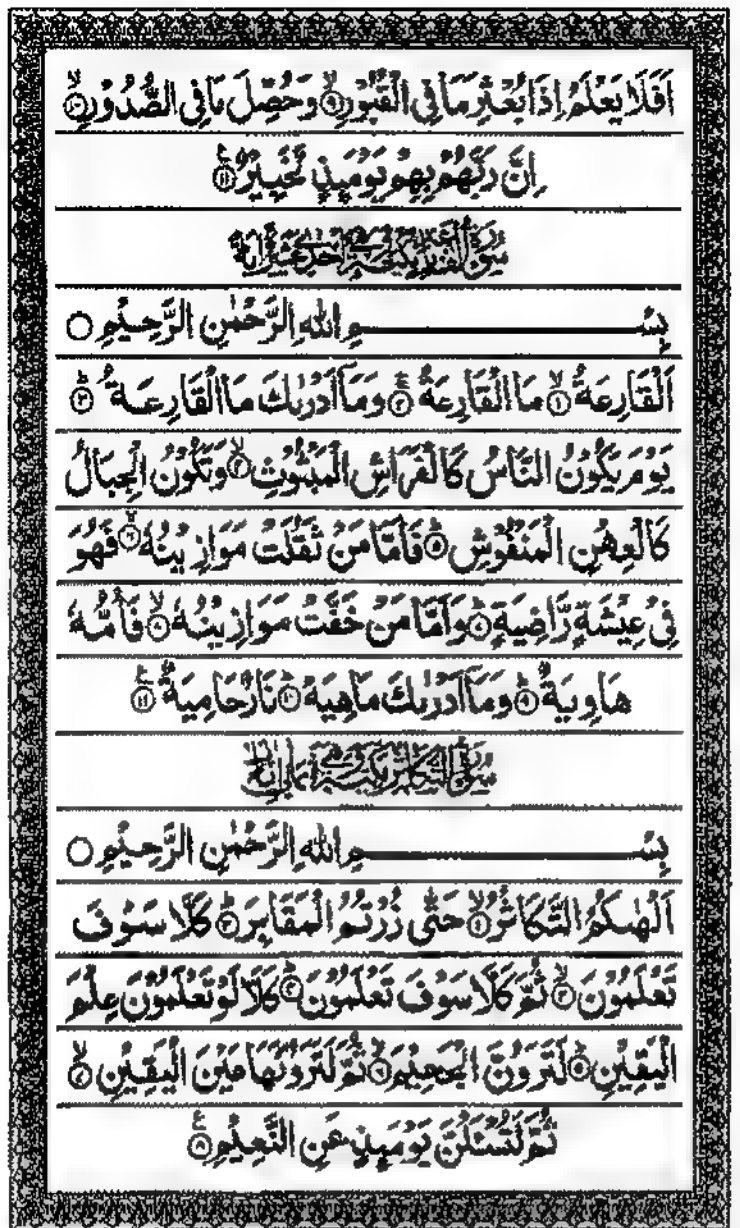 اَفَلَا يَعْلَمُ اِذَا بُعْثِرَ مَا فِى الْقُبُوْرِ ۙ﴿۹﴾ وَحُصِّلَ مَا فِى الصُّدُوْرِ ۙ﴿۱۰﴾
اِنَّ رَبَّهُمْ بِهِمْ يَوْمَئِذٍ لَّخَبِيْرٌ ﴿۱۱﴾
سُوْرَةُ الْقَارِعَةِ مَكِّيَّةٌ وَّهِىَ اِحْدٰى عَشْرَةَ اٰيَةً
بِسْمِ اللهِ الرَّحْمٰنِ الرَّحِيْمِ ○
اَلْقَارِعَةُ ۙ﴿۱﴾ مَا الْقَارِعَةُ ۚ﴿۲﴾ وَمَاۤ اَدْرٰىكَ مَا الْقَارِعَةُ ؕ﴿۳﴾
يَوْمَ يَكُوْنُ النَّاسُ كَالْفَرَاشِ الْمَبْثُوْثِ ۙ﴿۴﴾ وَتَكُوْنُ الْجِبَالُ
كَالْعِهْنِ الْمَنْفُوْشِ ؕ﴿۵﴾ فَاَمَّا مَنْ ثَقُلَتْ مَوَازِيْنُهٗ ۙ﴿۶﴾ فَهُوَ
فِىْ عِيْشَةٍ رَّاضِيَةٍ ؕ﴿۷﴾ وَاَمَّا مَنْ خَفَّتْ مَوَازِيْنُهٗ ۙ﴿۸﴾ فَاُمُّهٗ
هَاوِيَةٌ ؕ﴿۹﴾ وَمَاۤ اَدْرٰىكَ مَاهِيَهْ ؕ﴿۱۰﴾ نَارٌ حَامِيَةٌ ﴿۱۱﴾
سُوْرَةُ التَّكَاثُرِ مَكِّيَّةٌ وَّهِىَ ثَمَانُ اٰيَاتٍ
بِسْمِ اللهِ الرَّحْمٰنِ الرَّحِيْمِ ○
اَلْهٰىكُمُ التَّكَاثُرُ ۙ﴿۱﴾ حَتّٰى زُرْتُمُ الْمَقَابِرَ ؕ﴿۲﴾ كَلَّا سَوْفَ
تَعْلَمُوْنَ ۙ﴿۳﴾ ثُمَّ كَلَّا سَوْفَ تَعْلَمُوْنَ ؕ﴿۴﴾ كَلَّا لَوْ تَعْلَمُوْنَ عِلْمَ
الْيَقِيْنِ ؕ﴿۵﴾ لَتَرَوُنَّ الْجَحِيْمَ ۙ﴿۶﴾ ثُمَّ لَتَرَوُنَّهَا عَيْنَ الْيَقِيْنِ ۙ﴿۷﴾
ثُمَّ لَتُسْئَلُنَّ يَوْمَئِذٍ عَنِ النَّعِيْمِ ﴿۸﴾